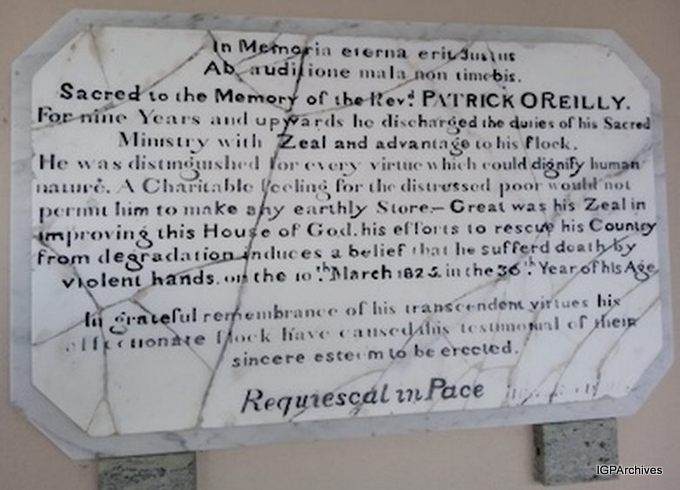 In Memoria eterna erit Justus
Ab auditione mala non timebis.
Sacred to the Memory of the Revd. PATRICK OREILLY.
For nine Years and upwards he discharged the duties of his Sacred
Ministry with Zeal and advantage to his flock.
He was distinguished for every virtue which could dignify human
nature. A Charitable feeling for the distressed poor would not
permit him to make any earthly Store.— Great was his Zeal in
improving this House of God, his efforts to rescue his Country
from degradation induces a belief that he sufferd death by
violent hands, on the 10th March 1825, in the 36th Year of his Age
In grateful remembrance of his transcendent virtues his
affectionate flock have caused this testimonial of their
sincere esteem to be erected.
Requiescat in Pace
IGPArchives